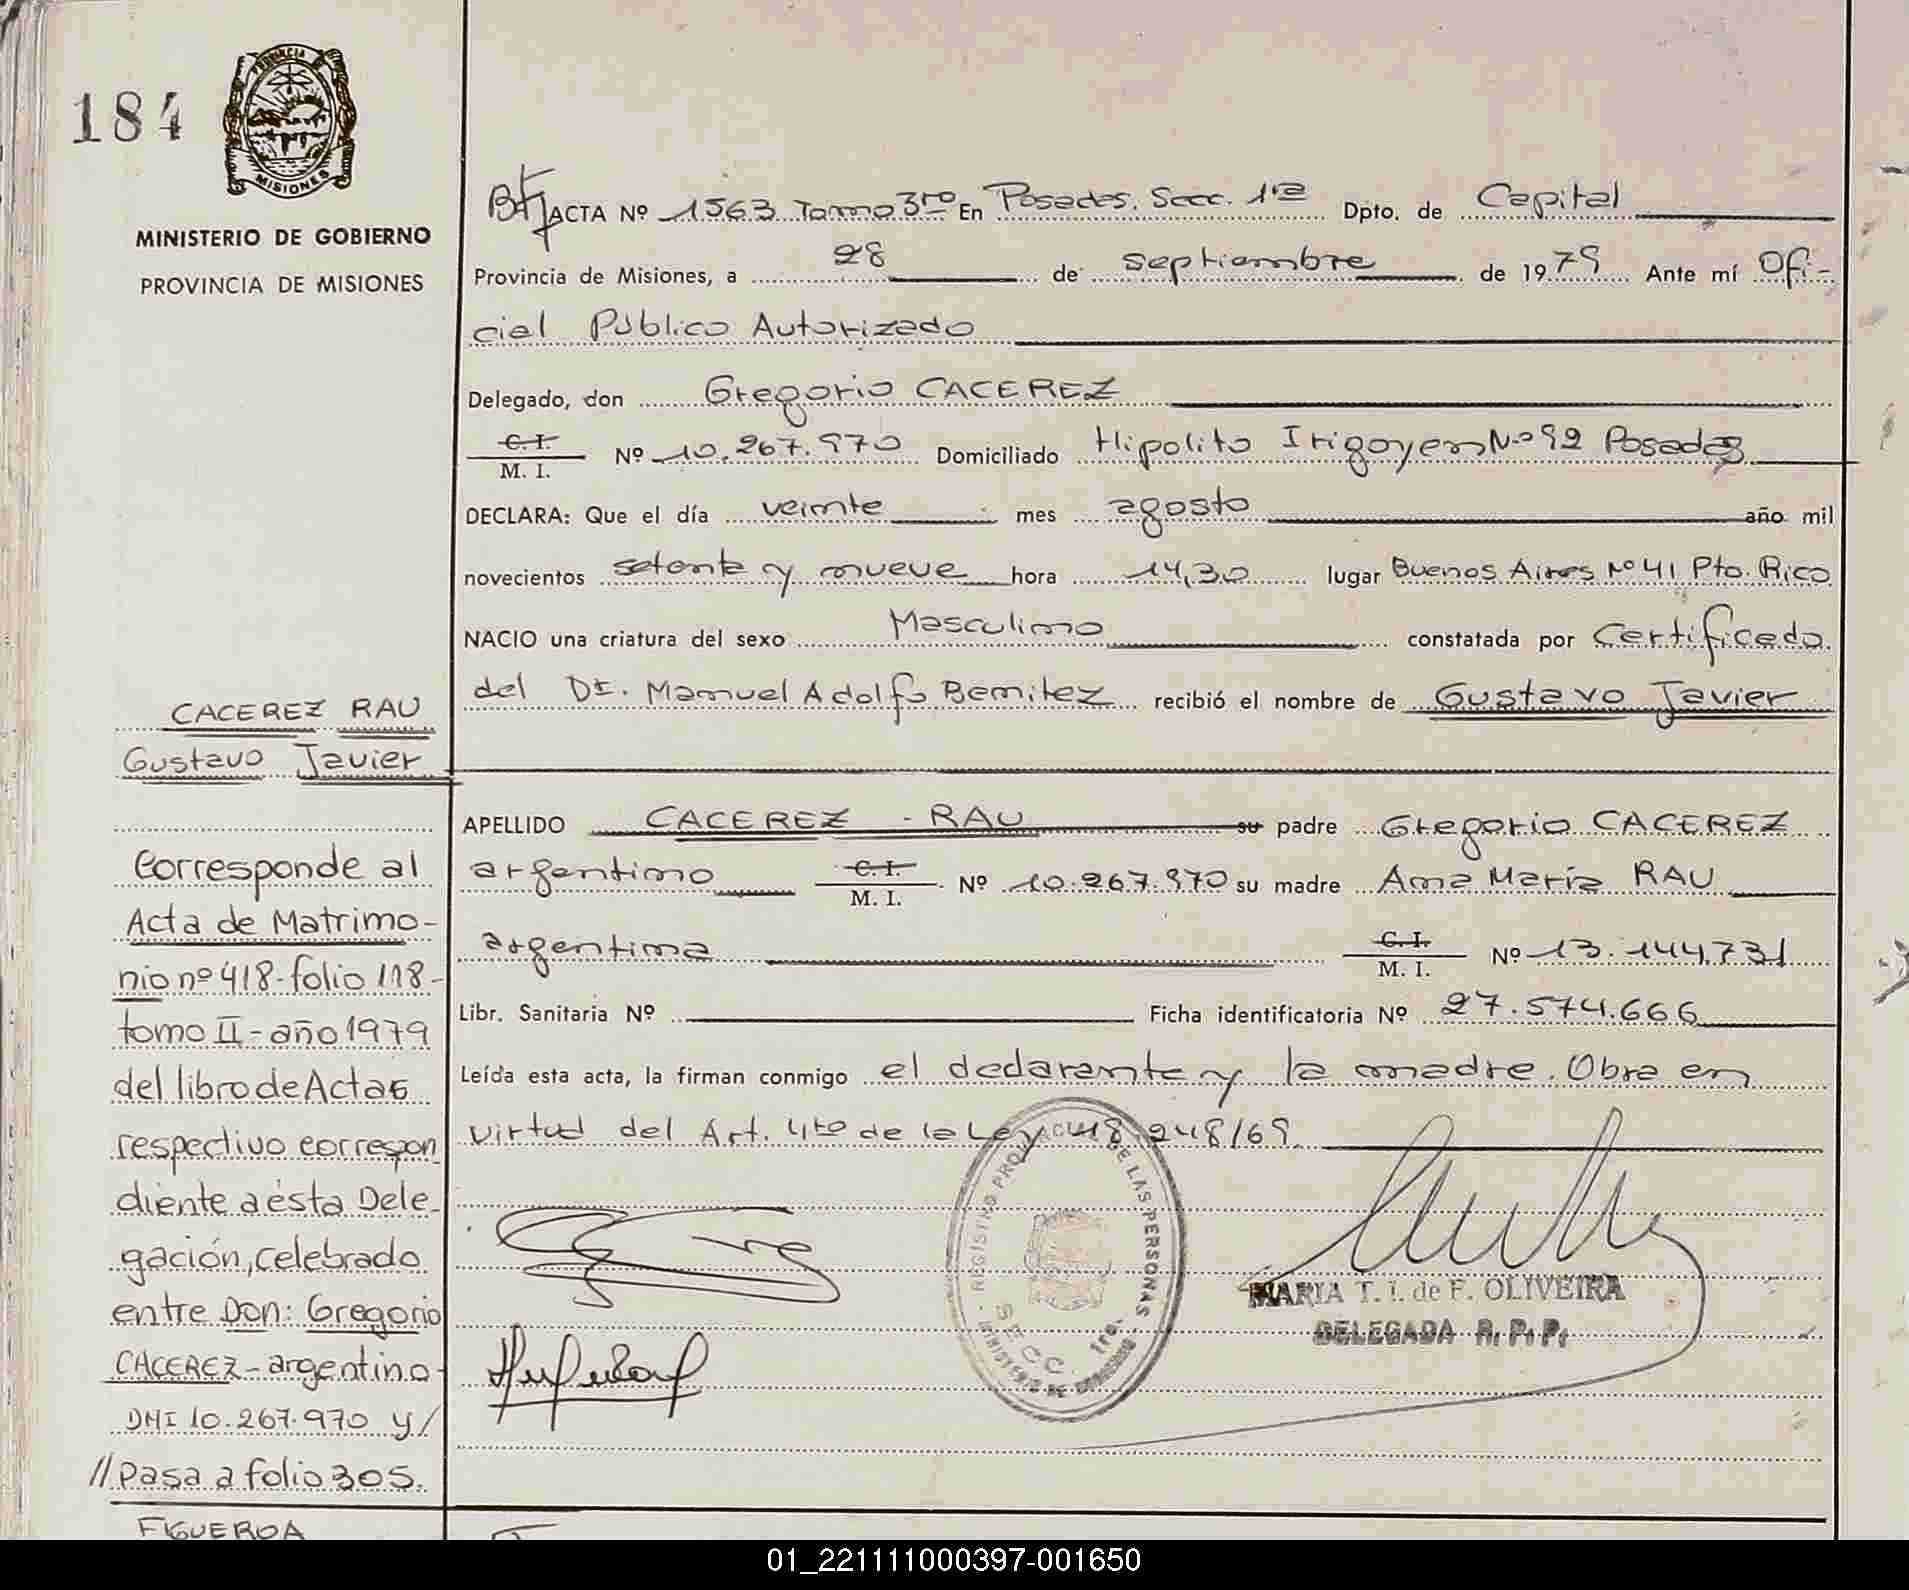 184
PROVINCIA DE
MISIONES
MINISTERIO DE GOBIERNO
PROVINCIA DE MISIONES
ACTA Nº 1563 Tomo 3ro En Posadas. Secc. 1ra Dpto. de Capital
Provincia de Misiones, a 28 de septiembre de 1979 Ante mí Ofi-
cial Público Autorizado
Delegado, don Gregorio CACEREZ
C. I.
M. I. Nº 10.267.970 Domiciliado Hipolito Irigoyen Nº 92 Posadas
DECLARA: Que el día veinte mes agosto año mil
novecientos setenta y nueve hora 14,30 lugar Buenos Aires Nº 41 Pto. Rico
NACIO una criatura del sexo Masculino constatada por Certificado
del Dr. Manuel Adolfo Benitez recibió el nombre de Gustavo Javier
CACEREZ RAU
Gustavo Javier
APELLIDO CACEREZ - RAU su padre Gregorio CACEREZ
argentino C. I. M. I. Nº 10.267.970 su madre Ana María RAU
argentina C. I. M. I. Nº 13.144.731
Libr. Sanitaria Nº Ficha identificatoria Nº 27.574.666
Leída esta acta, la firman conmigo el declarante y la madre. Obra en
virtud del Art. 4to de la Ley 18.248/69.
Corresponde al
Acta de Matrimo-
nio nº 418-folio 118-
tomo II-año 1979
del libro de Actas
respectivo correspon
diente a ésta Dele-
gación, celebrado
entre Don: Gregorio
CACEREZ-argentino-
DMI 10.267.970 y/
//Pasa a folio 305.
REGISTRO PROV. DE LAS PERSONAS
SECC. 1ra.
MINISTERIO DE GOBIERNO
MARIA T. I. de F. OLIVEIRA
DELEGADA R. P. P.
FIGUEROA
01_221111000397-001650